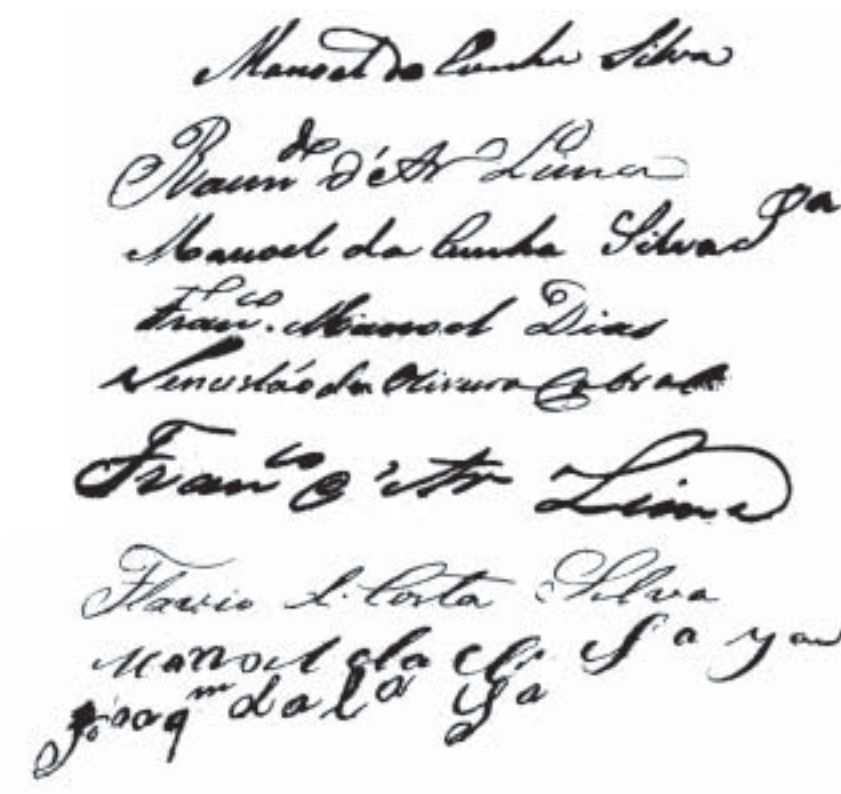 Manoel da Cunha Silva
Raimdo d'Ar Lima
Manoel da Cunha Silva
Franco. Manoel Dias
Vencesláo de Oliveira Cabral
Franco d'Ar Lima
Flavio d. Costa Silva
Manoel da Sa
Joaqm da Sa